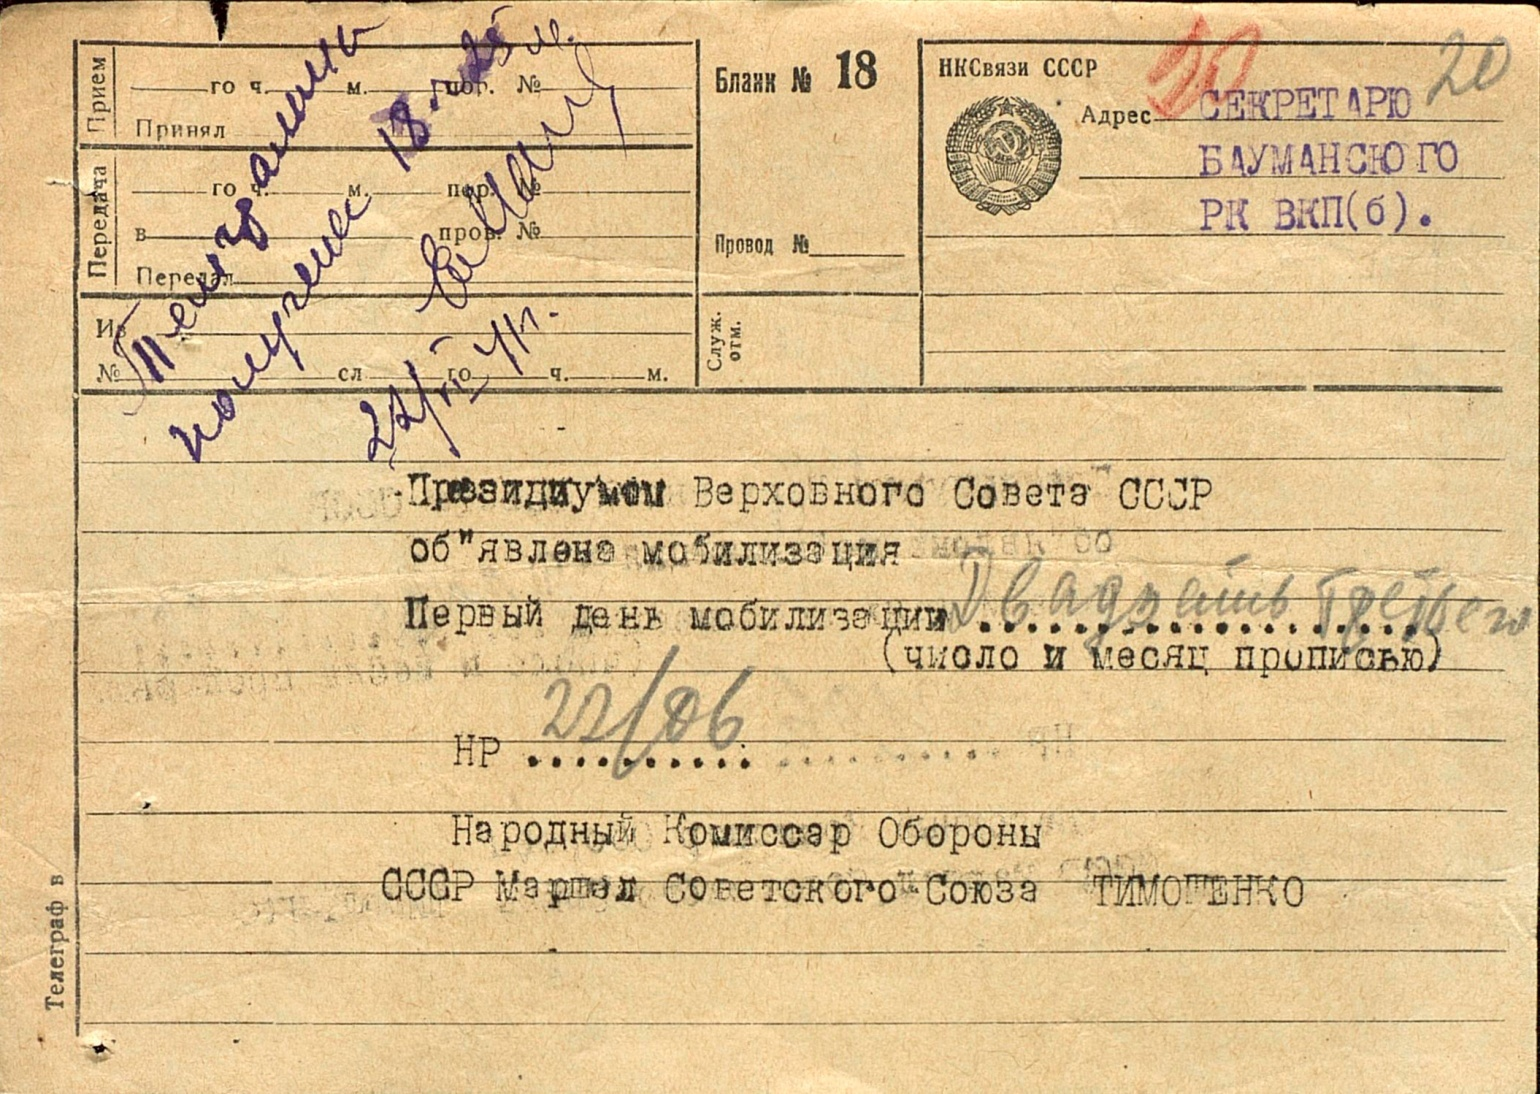 Прием
го ч. м. пор. №
Принял
Передача
го ч. м. пор. №
в пров. №
Передал
Из
№ сл го ч. м.
Телеграмма
получена 18 ч. 25 м.
22/VI 41 г.
Бланк № 18
Провод №
Служ. отм.
НКСвязи СССР
20
20
Адрес СЕКРЕТАРЮ
БАУМАНСКОГО
РК ВКП(б).
Президиумом Верховного Совета СССР
об"явлена мобилизация
Первый день мобилизации Двадцать третьего
(число и месяц прописью)
НР 22/06
Народный Комиссар Обороны
СССР Маршал Советского Союза ТИМОШЕНКО
Телеграф в